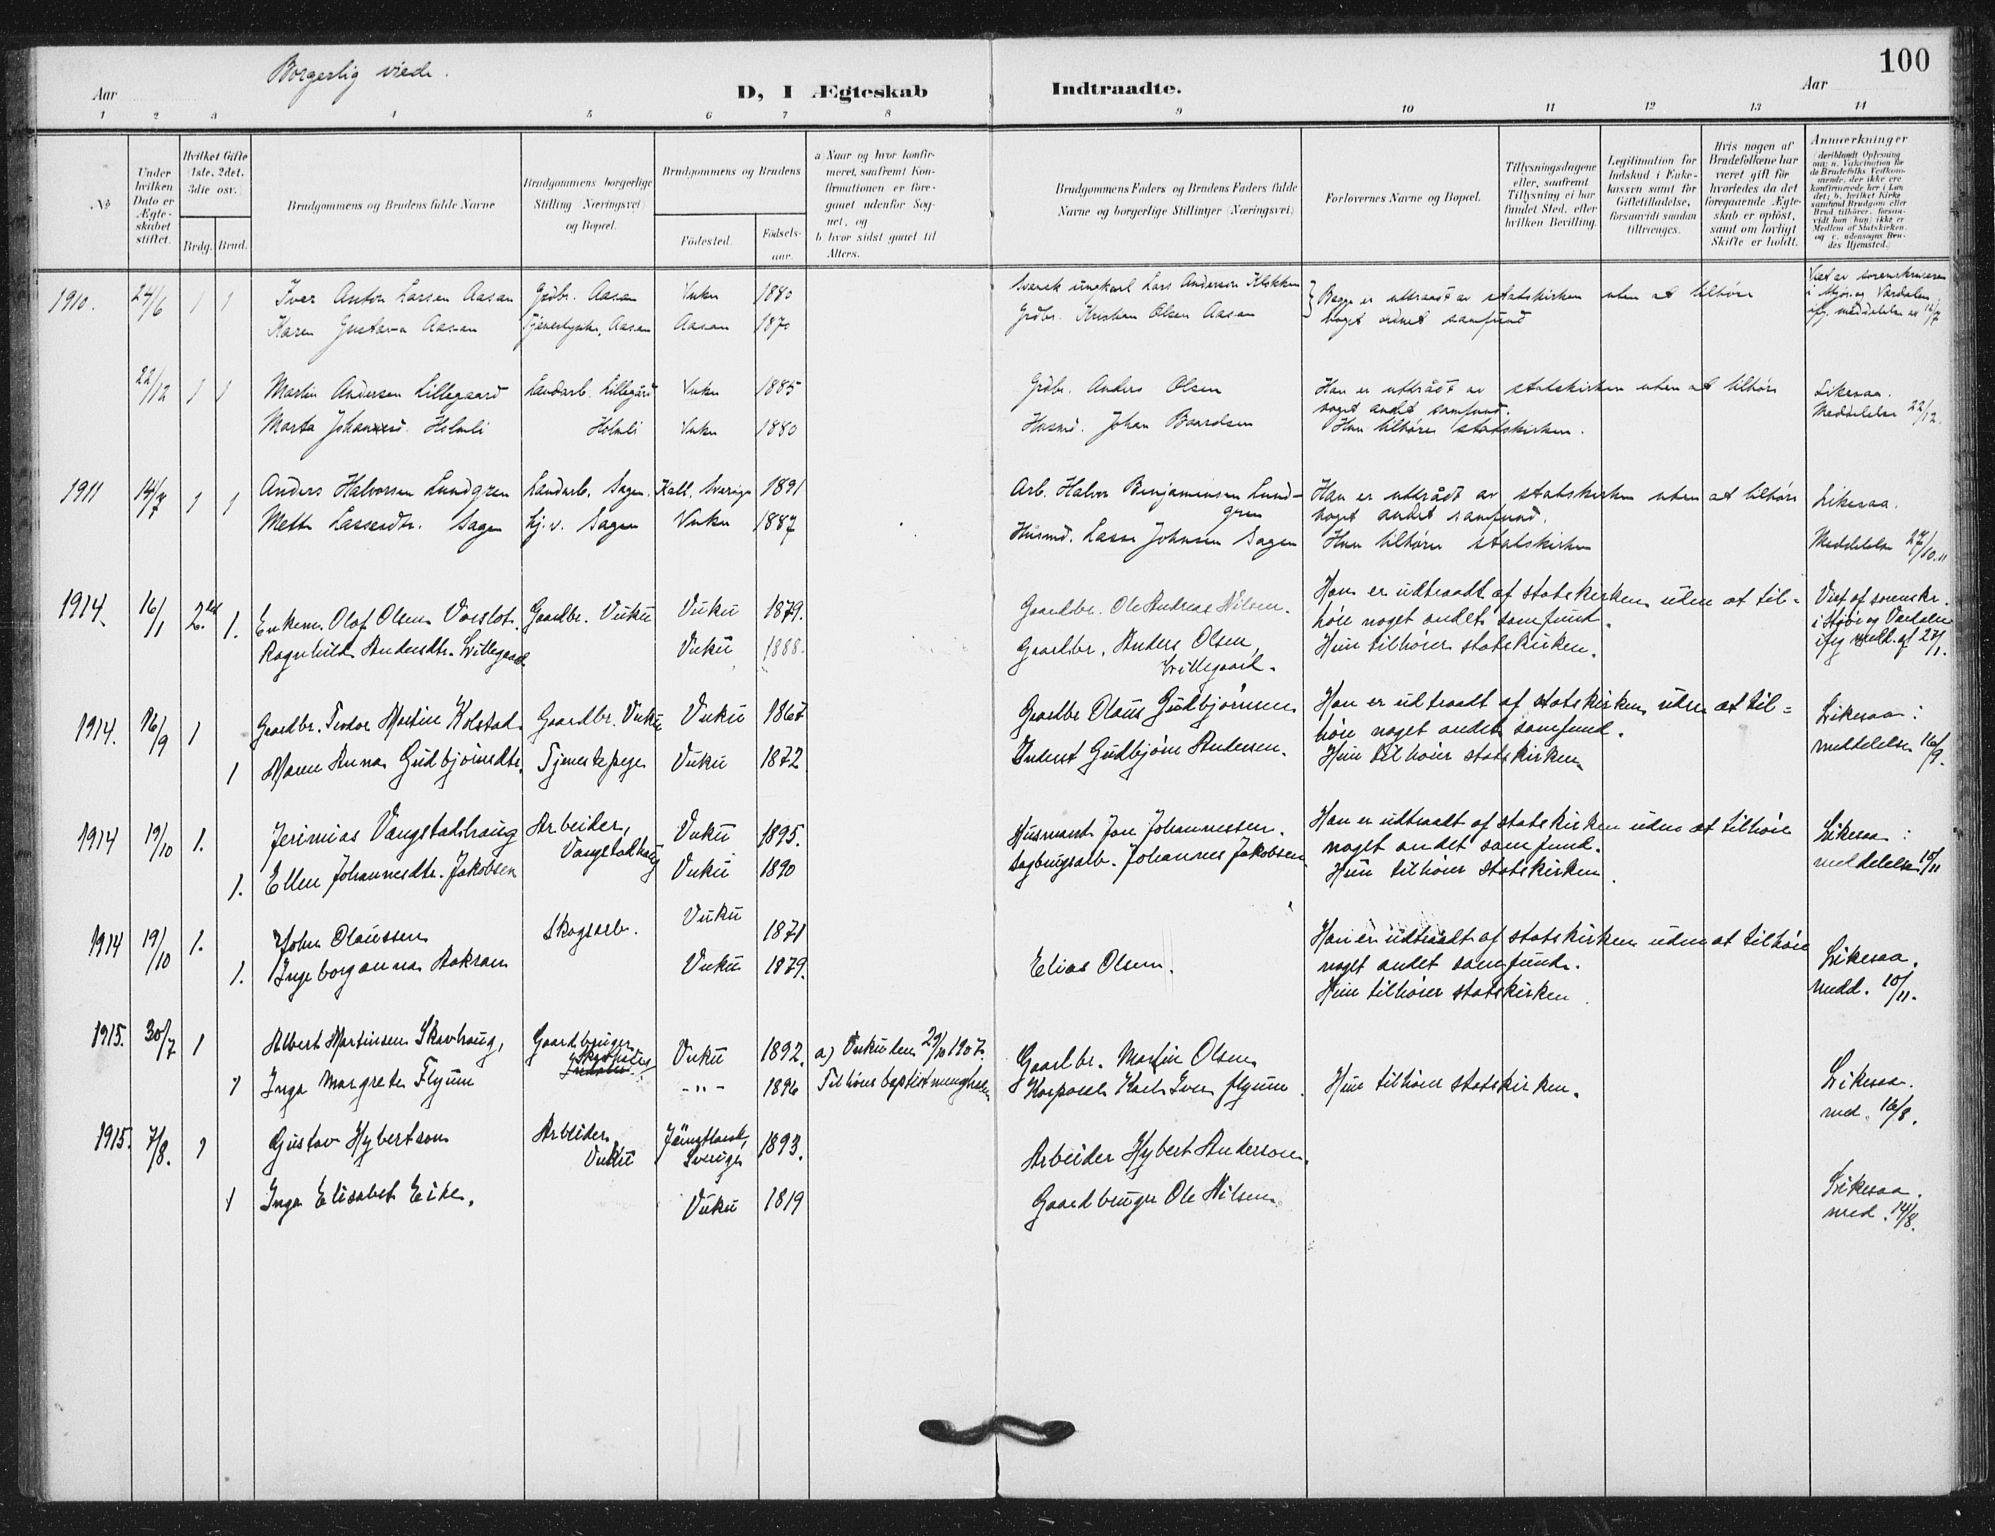 Borgerlig viede.
100
Aar
D, I Ægteskab Indtraadte.
Aar
1 2 3 4 5 6 7 8 9 10 11 12 13 14
No
Under hvilken Dato er Ægteskabet stiftet.
Hvilket Gifte (1ste, 2det, 3die osv.)
Brdg. Brud.
Brudgommens og Brudens fulde Navne.
Brudgommens borgerlige Stilling (Næringsvei) og Bopæl.
Brudgommens og Brudens
Fødested. Fødselsaar.
a) Naar og hvor konfirmeret, saafremt Konfirmationen er foregaaet udenfor Sognet, og
b) hvor sidst gaaet til Alters.
Brudgommens Faders og Brudens Faders fulde Navne og borgerlige Stillinger (Næringsvei)
Forlovernes Navne og Bopæl.
Tillysningsdagene eller, saafremt Tillysning ei har fundet Sted, efter hvilken Bevilling.
Legitimation for Indskud i Enkekassen samt for Giftetilladelse, forsaavidt saadan tiltrænges.
Hvis nogen af Brudefolkene har været gift før hvorledes da det foregaaende Ægteskab er opløst, samt om lovligt Skifte er holdt.
Anmærkninger
1910. 24/6 1 1 Iver Anton Larsen Aasan Grdbr. Aasan Vuku 1880 Svensk Lars Anderson Klokken Begge er uttraadt av statskirken uten at tilhøre
Karen Gustava Aasan Aasan Aasan 187 Grdbr. Kristian Olsen Aasan noget andet samfund
Viet av sorenskriveren i Stjør og Værdalen ifg. meddelelse av 12/7
22/12 1 1 Martin Andersen Lillegaard Landarb. Lillegård Vuku 1885 Grdbr. Anders Olsen Han er uttrådt av statskirken uten at tilhøre noget andet samfund. Likesaa.
Marta Holmli Holmli Vuku 1880 Husmd. Johan Baardsen Hun tilhører statskirken. Meddelelse 22/12.
1911 14/7 1 1 Anders Halvorsen Lundgren Landarb. Sagen Kall, Sverige 1891 Arb. Halvor Benjaminsen Lundgren Han er uttrådt av statskirken uten at tilhøre noget andet samfund. Likesaa.
Mette Lassesdtr. Sagen Sagen Vuku 1887 Husmd. Lasse Johnsen Sagen Hun tilhører statskirken Meddelelse 27/10.11
1914. 16/1 2.det 1. Enkem. Olof Olsen Gaardbr. Vuku Vuku 1879. Gaardbr. Ole Andreas Nilsen. Han er udtraadt af statskirken uden at tilhøre noget andet samfund. Viet af sorenskr. i Stjør og Værdalen ifg medd. af 27/1.
Ragnhild Andersdtr. Lillegaard Vuku 1888. Gaardbr. Anders Olsen Lillegaard. Hun tilhører statskirken.
1914. 16/9 1 Gaardbr. Teodor Martin Kolstad Gaardbr. Vuku Vuku 1867 Gaardbr Olaus Gudbjørnsen Han er udtraadt af statskirken uden at tilhøre noget andet samfund. Likesaa:
1 Maren Anna Gudbjørnsdtr. Tjenestepige Vuku 1872 Inderst Gudbjørn Andersen. Hun tilhører statskirken. meddelelse 16/9.
1914 19/10 1. Jerimias Vangstadhaug Arbeider, Vangstadhaug Vuku 1895. Husmand Jon Johannessen. Han er udtraadt af statskirken uden at tilhøre noget andet samfund. Likesaa:
1. Ellen Johannesdtr. Jakobsen Vuku 1890 Sagbrugsarb. Johannes Jakobsen Hun tilhører statskirken. meddelelse 10/11
1914 19/10 1. John Olaussen Skogsarb. Vuku 1871 Han er udtraadt af statskirken uden at tilhøre noget andet samfund. Likesaa.
1. Ingeborganna Aakran Vuku 1879. Elias Olsen. Hun tilhører statskirken. medd. 10/11.
1915. 30/7 1 Albert Martinsen Skavhaug, Gaardbruger Vuku 1892. a) Vukuden 29/10 1907. Gaardbr. Martin Olsen
1 Inga Margrete Flyum -"- 1896 Tilhører baptistmenigheden Korporal Karl Iver Flyum. Hun tilhører statskirken. Likesaa. med. 16/8.
1915. 7/8. 1 Gustav Hybertson Arbeider Vuku Jämtland, Sverige 1893. Arbeider Hybert Anderson.
1 Inga Elisabet Eike. Vuku 1819 Gaardbruger Ole Nilsen Likesaa. med. 14/8.